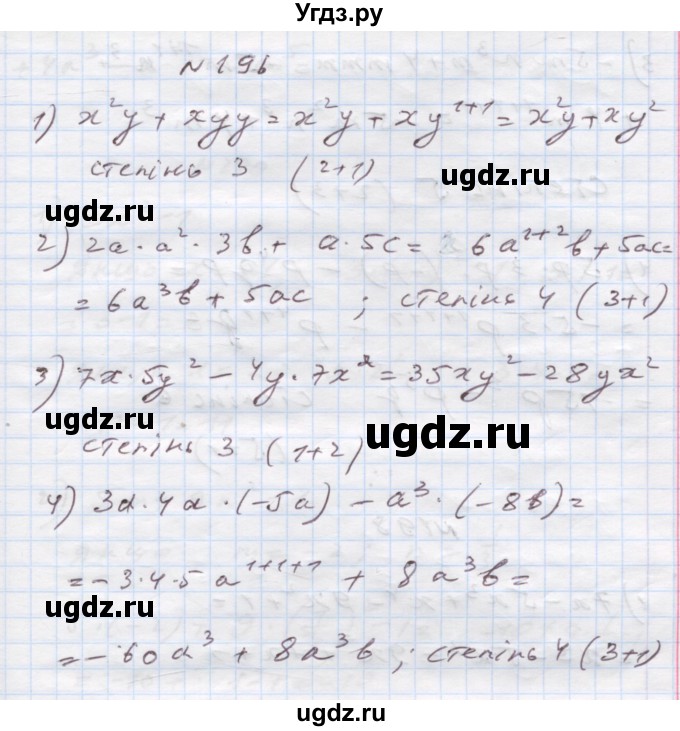 Угдз.ру
N 196
1) x²y + xyy = x²y + xy¹⁺¹ = x²y + xy²
степінь 3 (2+1)
ugdz.ru
ugdz.ru
2) 2a · a² · 3b + a · 5c = 6a¹⁺²b + 5ac =
= 6a³b + 5ac ; степінь 4 (3+1)
ugdz.ru
ugdz.ru
3) 7x · 5y² − 4y · 7x² = 35xy² − 28yx²
ugdz.ru
степінь 3 (1+2)
4) 3a · 4a · (−5a) − a³ · (−8b) =
= −3·4·5 a¹⁺¹⁺¹ + 8a³b =
ugdz.ru
ugdz.ru
= −60a³ + 8a³b ; степінь 4 (3+1)
ugdz.ru